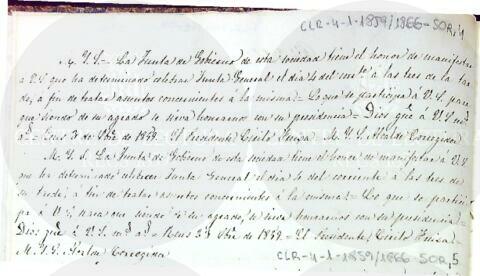 CLR-4-1-1859/1866-SOR,4
M. Y. S. = La Junta de Gobierno de esta sociedad tiene el honor de manifestar
á V.S. que ha determinado celebrar Junta General el dia 4 del á las tres de la tar
de, á fin de tratar asuntos concernientes á la misma = Lo que se participa á V.S. para
que siendo de su agrado se sirva honrarnos con su presidencia = Dios que á V.S. m.s
a.s Reus 3 de 1859. El Presidente Cirilo M. Y. S. Alcalde Corregidor
M. Y. S. La Junta de Gobierno de esta sociedad tiene el honor de manifestar á V.S.
que ha determinado celebrar Junta General el dia 4 del corriente á las tres de
su tarde, á fin de tratar asuntos concernientes á la misma = Lo que se partici
pa á V.S. para que siendo de su agrado, se sirva honrarnos con su presidencia =
Dios que á V.S. m.s a.s = Reus 3 de 1859 = El Presidente, Cirilo
M. Y. S. Corregidor
CLR-4-1-1859/1866-SOR,5